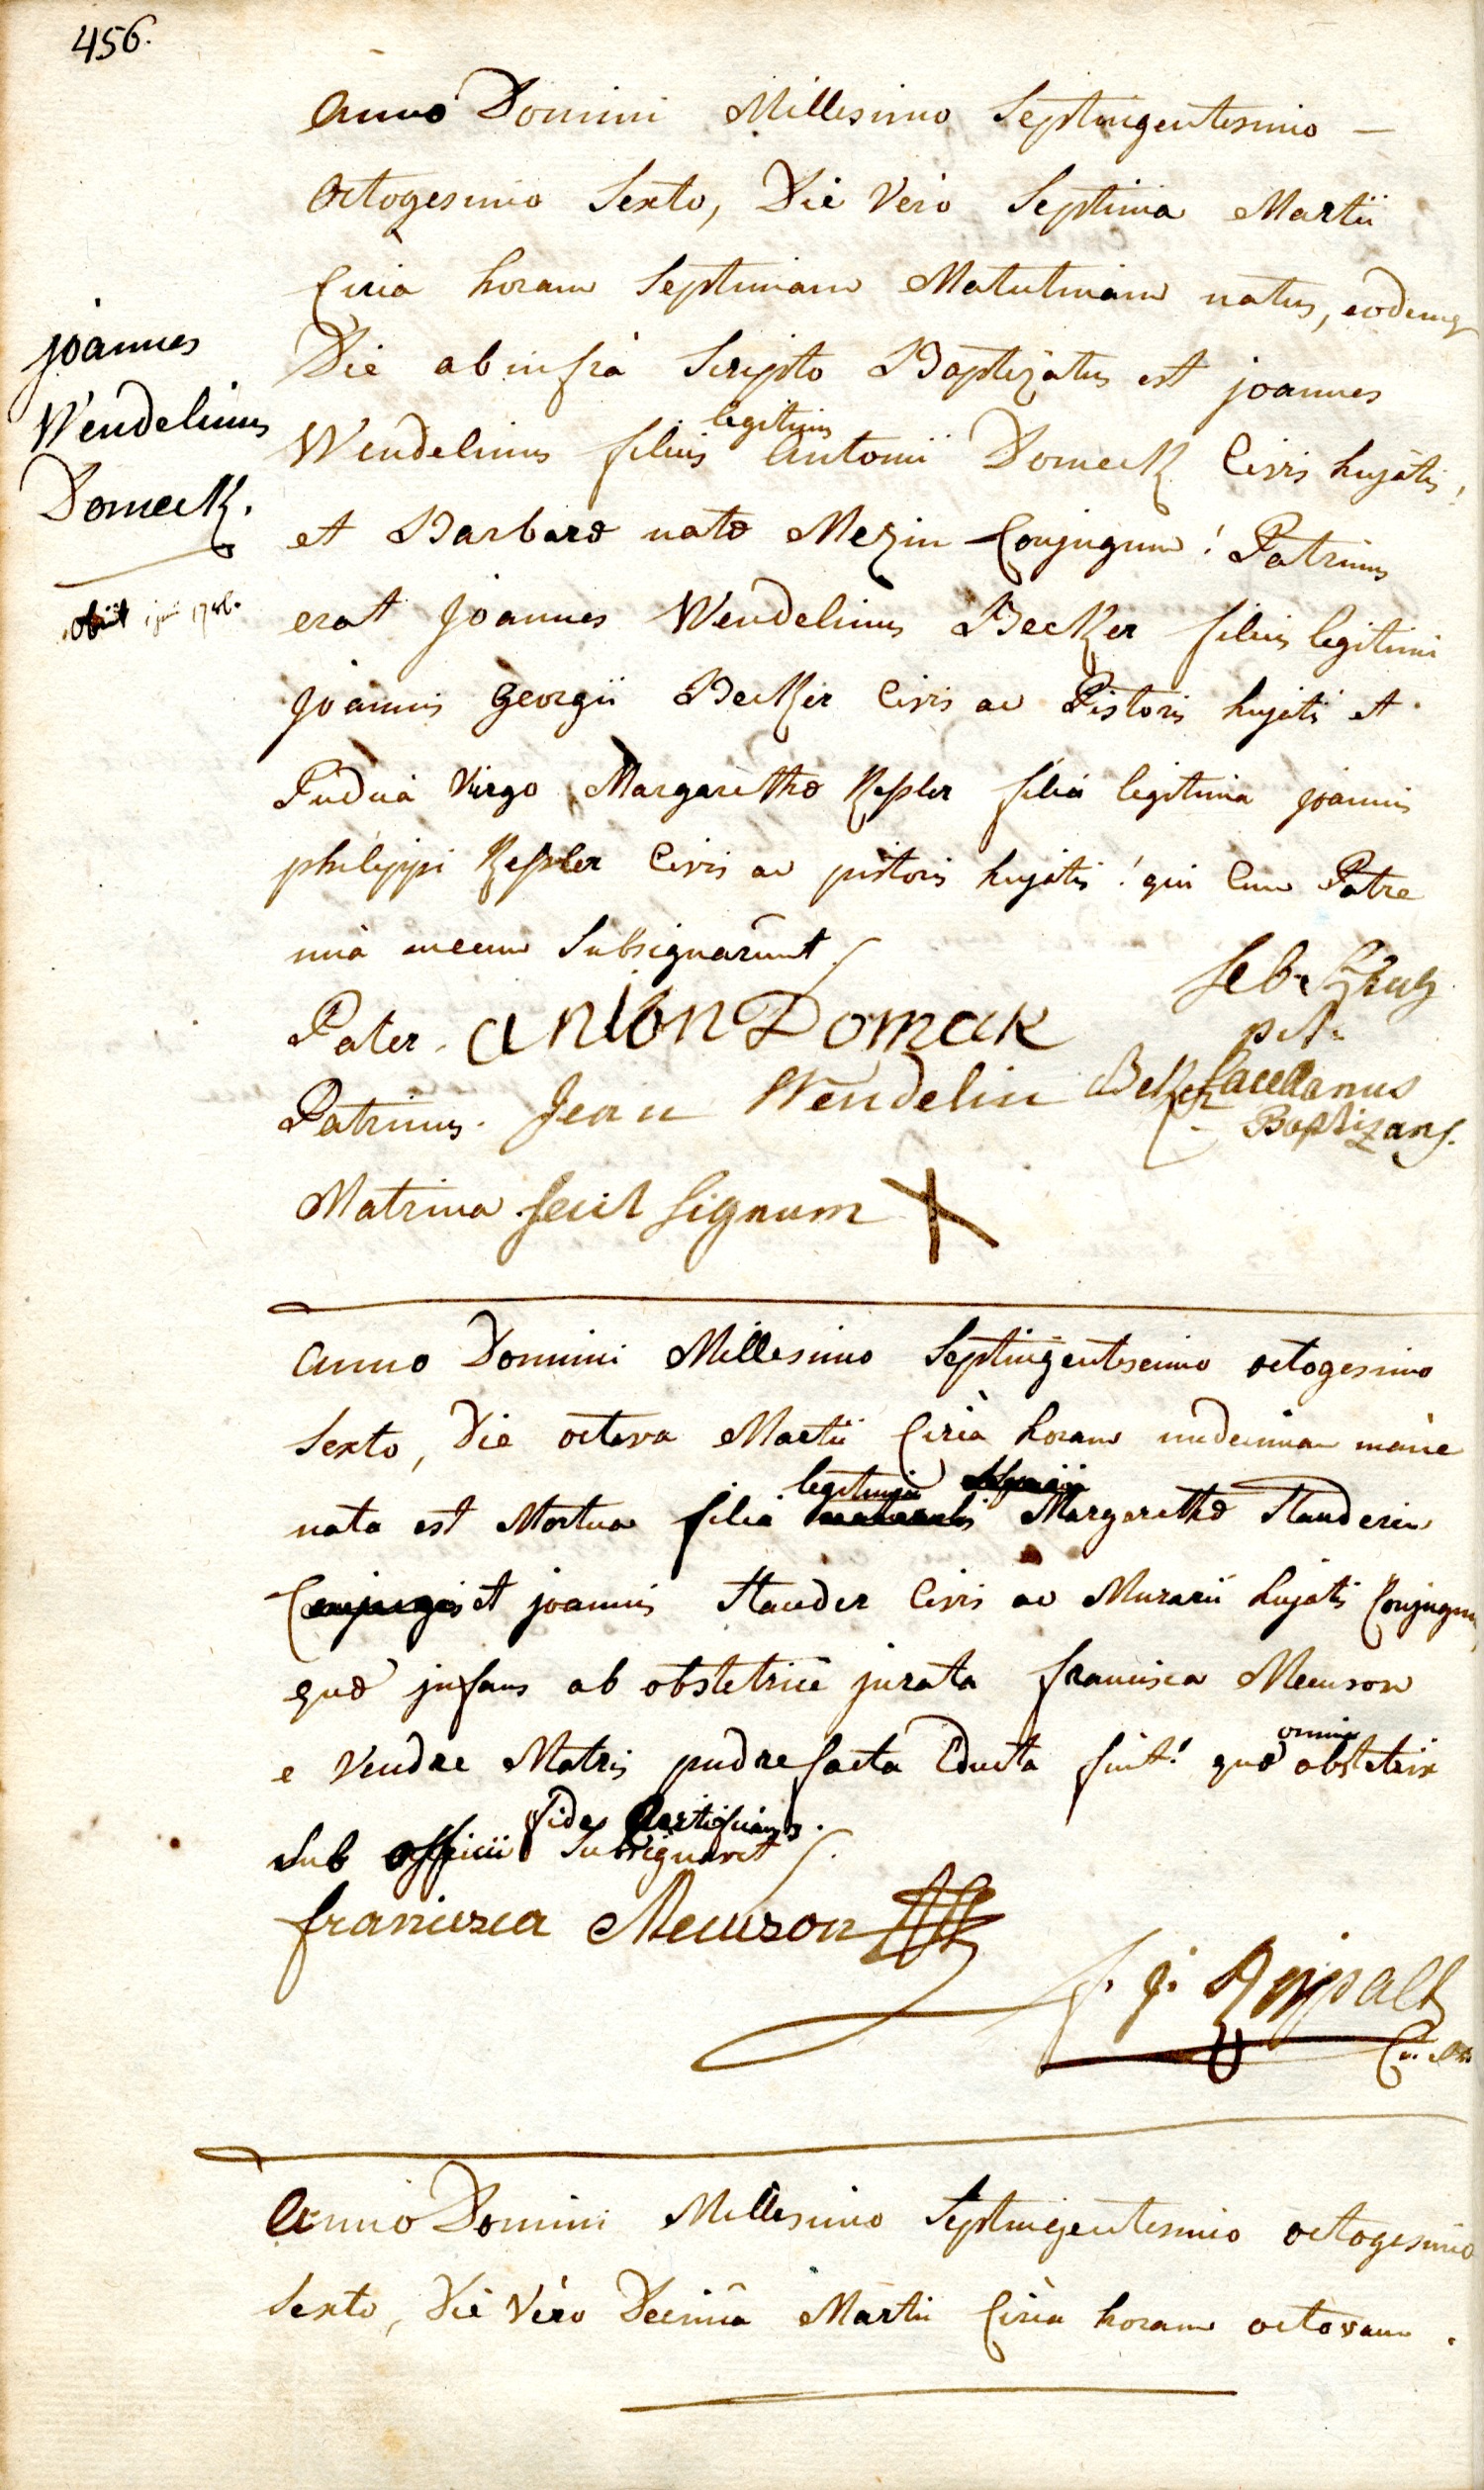 456.
Anno Domini Millesimo Septingentesimo —
Octogesimo Sexto, Die Vero Septima Martii
Circa horam Septimam Matutinam natus, eodemq
Die ab infra Scripto Baptizatus est joannes
legitimus
Wendelinus filius Antonii Domeck Civis hujatis,
et Barbara nata Mezin Conjugum! Patrinus
erat Joannes Wendelinus Becker filius legitimi
Joannis Georgii Becker Civis ac Pistoris hujatis et
Virgo Margaretha Kessler filia legitima joannis
philippi Kessler Civis ac pistoris hujatis! qui Cum Patre
una mecum Subsignarunt.
joannes
Wendelinus
Domeck.
obiit 1786.
Pater. anton Domeck
Patrinus. Jean Wendelin Becker
Matrina fecit Signum X
Seb.
pt.
Sacellanus
Baptizans.
Anno Domini Millesimo Septingentesimo octogesimo
Sexto, Die octava Martii Circa horam undecimam mane
legitima
nata est Mortua filia Margaretha Stauderin
et joannis Stauder Civis ac Murarii hujatis Conjugum
qua jnfans ab obstetrice jurata francisca Meurson
omnia
e Vendre Matris pudrefacta Educta fuit! qua obstetrix
fide Certificans.
Sub officii Subsignavit.
francisca Meuzon
f. j.
Anno Domini Millesimo Septingentesimo octogesimo
Sexto, Die Vero Decima Martii Circa horam octavam.